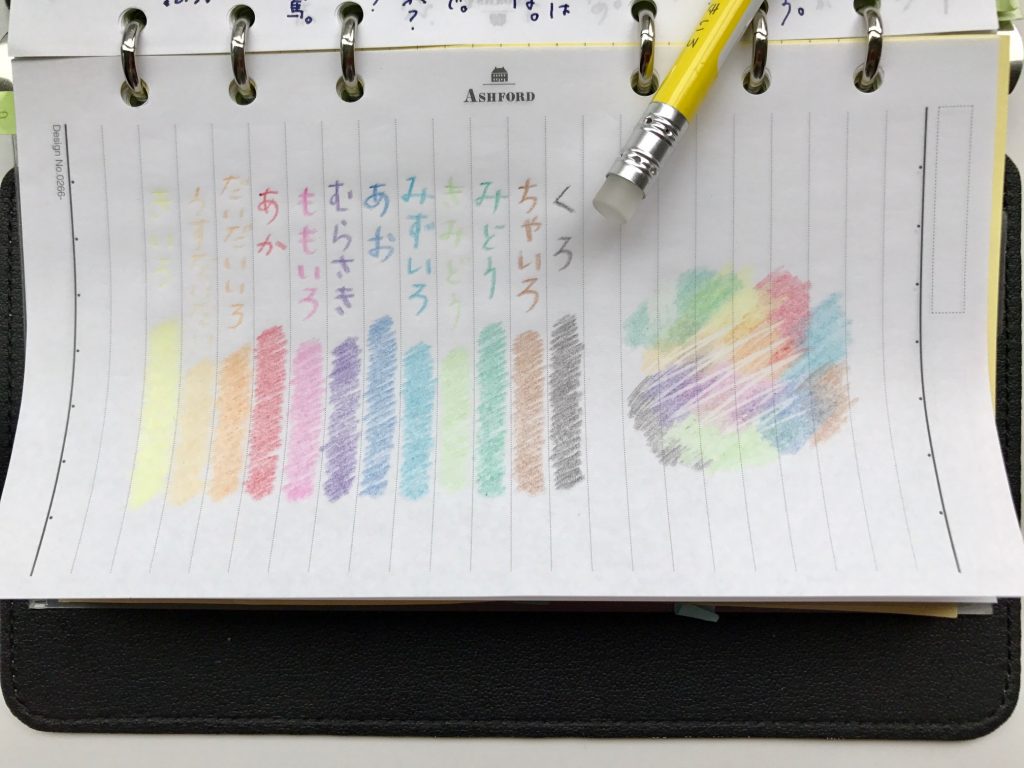 ASHFORD
Design No.0266-
くろ
ちゃいろ
みどり
きみどり
みずいろ
あお
むらさき
ももいろ
あか
だいだいいろ
うすだいだい
きいろ